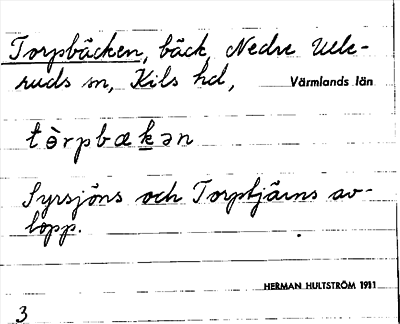 Torpbäcken, bäck, Nedre Ulle-
ruds sn, Kils hd, Värmlands län
tòrpbækən
Syrsjöns och Torptjärns av-
lopp.
HERMAN HULTSTRÖM 1911
3